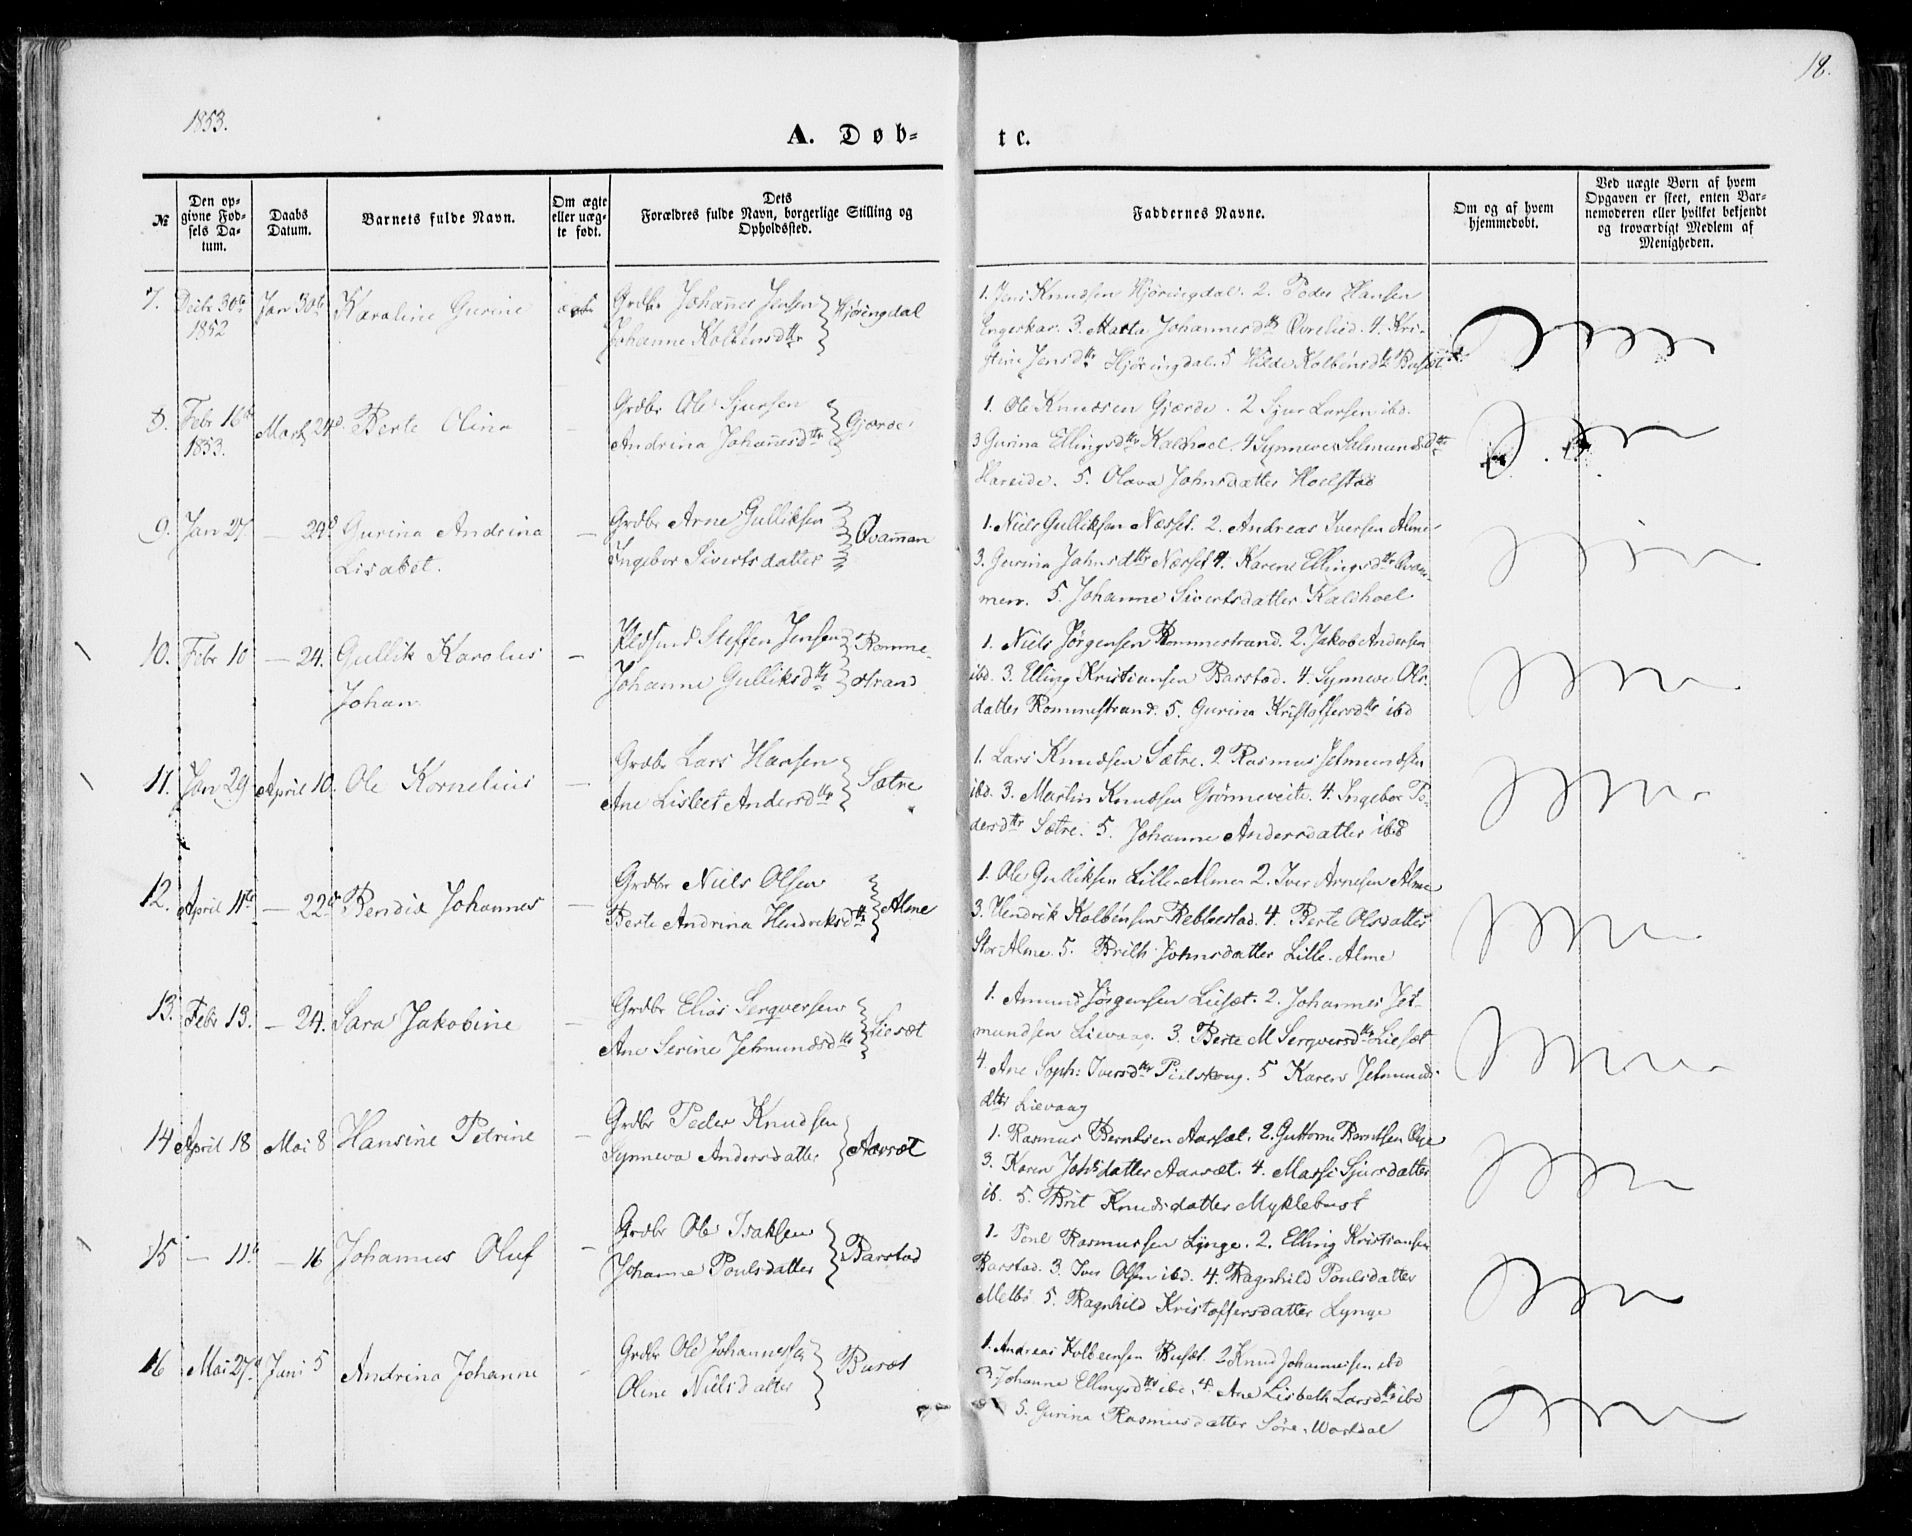 1853.
18.
A. Døb-
te.
№
Den op-
givne Fød-
sels Da-
tum.
Daabs
Datum.
Barnets fulde Navn.
Om ægte
eller uæg-
te født.
Dets
Forældres fulde Navn, borgerlige Stilling og
Opholdssted.
Faddernes Navne.
Om og af hvem
hjemmedøbt.
Ved uægte Børn af hvem
Opgaven er skeet, enten Bar-
nemoderen eller hvilket bekjendt
og troværdigt Medlem af
Menigheden.
7. Decbr 30te Jan 30te Karoline Gurine ægte Grdbr Johannes Jensen Hjøringdal
1852 Johanne Kolbensdttr
1. Jens Knudsen Hjøringdal. 2. Peder Hansen
Engeskar. 3. Marta Johannesdtr Øvrelid. 4. Kri-
stine Jensdttr Hjøringdal. 5 Hilde Kolbensdtr Busæt
8. Febr 16de Marts 24d Berte Olina - Grdbr Ole Sjursen Gjærde
1853. Andrina Johannesdttr
1. Ole Knudsen Gjærde. 2 Sjur Larsen ibd.
3 Gurina Ellingsdttr Kaldhoel. 4 Synneve Salmundsdttr
Hareide. 5. Olava Johnsdatter Hoelstad
9. Jan 27 - 24d Gurina Andrina - Grdbr Arne Gulliksen Qvamman
Lisabet. Ingebor Sivertsdatter
1. Niels Gulliksen Næsset. 2. Andreas Iversen Alme
3. Gurina Johnsdttr Næsset 4. Karen Ellingsdttr Qvam-
men. 5. Johanne Sivertsdatter Kaldhoel
10. Febr 10 - 24. Gullik Karolus - Steffen Jensen Romme-
Johan Johanne Gulliksdttr strand
1. Niels Jørgensen Rommestrand. 2. Jakob Andersen
ibd. 3. Elling Kristiansen Barstad. 4. Synneve Ols-
datter Rommestrand. 5. Gurina Kristoffersdttr ibd
11. Jan 29 April 10. Ole Kornelius - Grdbr Lars Hansen Sætre
Ane Lisbet Andersdttr
1. Lars Knudsen Sætre. 2 Rasmus Jetmundsen
ibd. 3. Martin Knudsen Grønneveite. 4. Ingebor Pe-
dersdttr Sætre. 5. Johanne Andersdatter ibd
12. April 11te - 22d Bendix Johannes - Grdbr Niels Olsen Alme
Berte Andrina Hendriksdtr
1. Ole Gulliksen Lille-Alme 2. Iver Arnesen Alme
3. Hendrik Kolbensen Rebbestad. 4. Berte Olsdatter
Stor-Alme. 5. Brith Johnsdatter Lille-Alme
13. Febr 13. - 24. Sara Jakobine - Grdbr Elias Serqversen Liesæt
Ane Serine Jetmundsdttr
1. Amund Jørgensen Liesæt. 2. Johannes Jet-
mundsen Lievaag. 3. Berte M Serqversdtr Liesæt
4. Ane Soph: Iversdttr Pielskoug. 5 Karen Jetmunds
dttr Lievaag
14 April 18 Mai 8 Hansine Petrine - Grdbr Peder Knudsen Aarsæt
Synneva Andersdatter
1. Rasmus Berntsen Aarsæt. 2. Guttorm Berntsen Øye
3. Karen Johsdatter Aarsæt. 4. Massi Sjursdatter
ib. 5. Brit Knudsdatter Myklebust
15 - 11d - 16 Johannes Oluf - Grdbr Ole Isaksen Barstad
Johanne Poulsdatter
1. Poul Rasmussen Lynge. 2. Elling Kristiansen
Barstad. 3. Iver Olsen ibd. 4. Ragnhild Poulsdatter
Melbø 5. Ragnhild Kristoffersdatter Lynge
16 Mai 27d Juni 5 Andrina Johanne - Grdbr Ole Johannessen Busæt
Oline Nielsdatter
1. Andreas Kolbeensen Busæt. 2 Knud Johannessen ibd
3 Johanne Ellingsdttr ibd. 4. Ane Lisbeth Larsdttr ibd
5. Gurina Rasmusdatter Søre-Vartdal